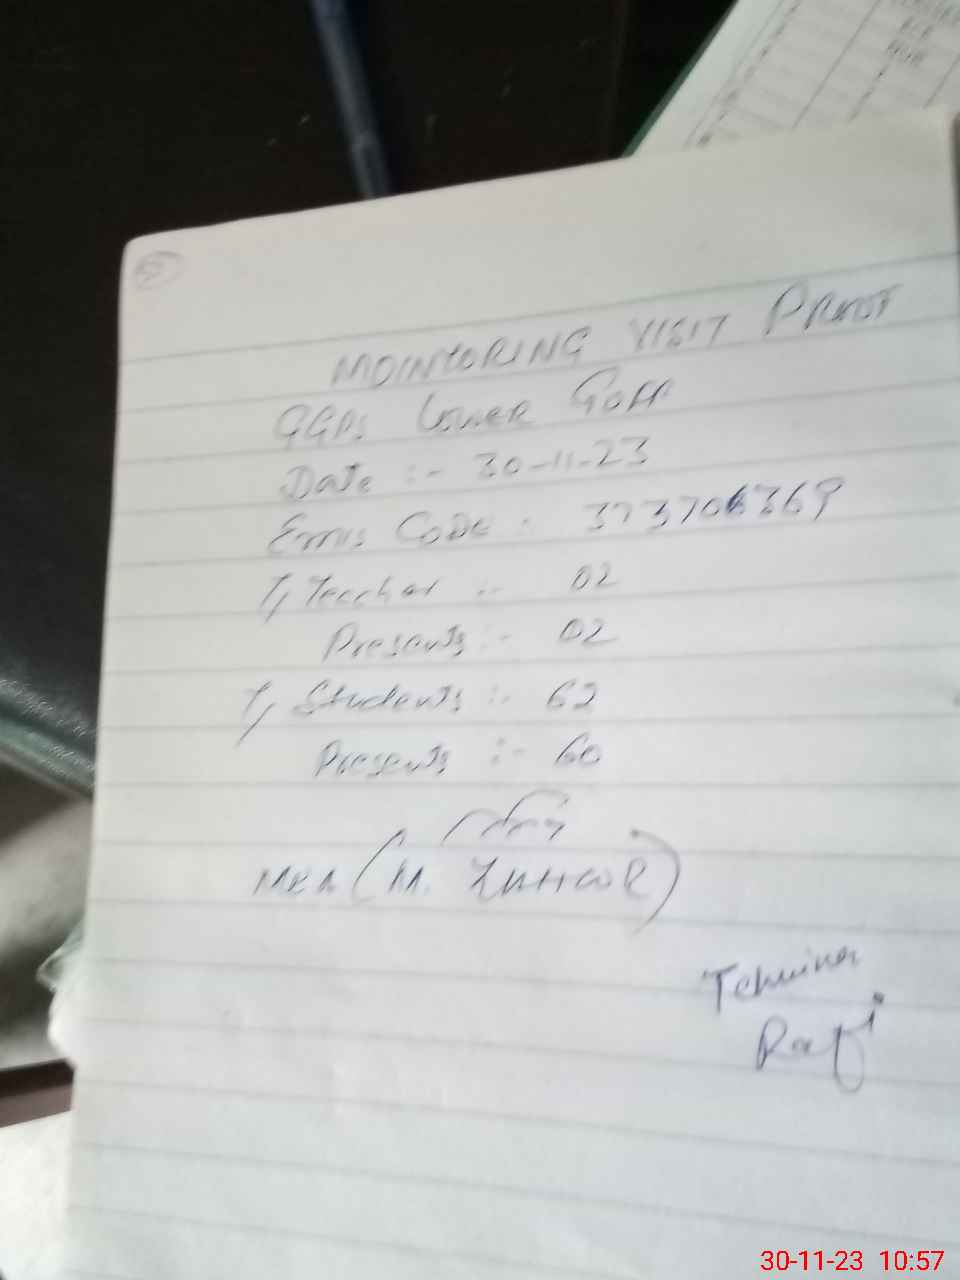 MOINTORING VISIT PROOF
GGPS LOWER GOHA
Date :- 30-11-23
Emis Code : 373706369
T, Teacher :- 02
Presents :- 02
T, Students :- 62
Presents :- 60
MEA (M. ZUHOOR)
Tehmina
Rafi
30-11-23 10:57